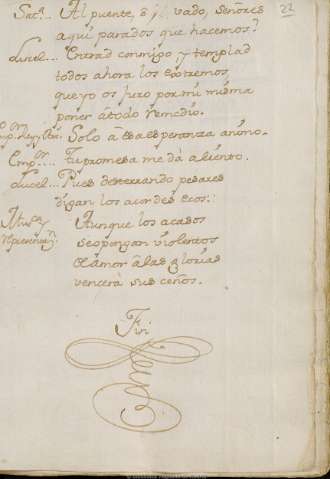 22
Sat.ª... Al puente, ô al vado, Señores
aqui parados que hacemos?
Lucel... Entrad conmigo y templad
todos ahora los extremos,
que yo os juro por mi misma
poner â todo remedio.
Solo â esa esperanza animo.
Emp.ª... Tu promesa me dà aliento.
Lucel... Pues desterrando pesares
digan los acordes ecos:
Aunque los acasos
se opongan violentos
el amor â las glorias
vencerà sus ceños.
Fin